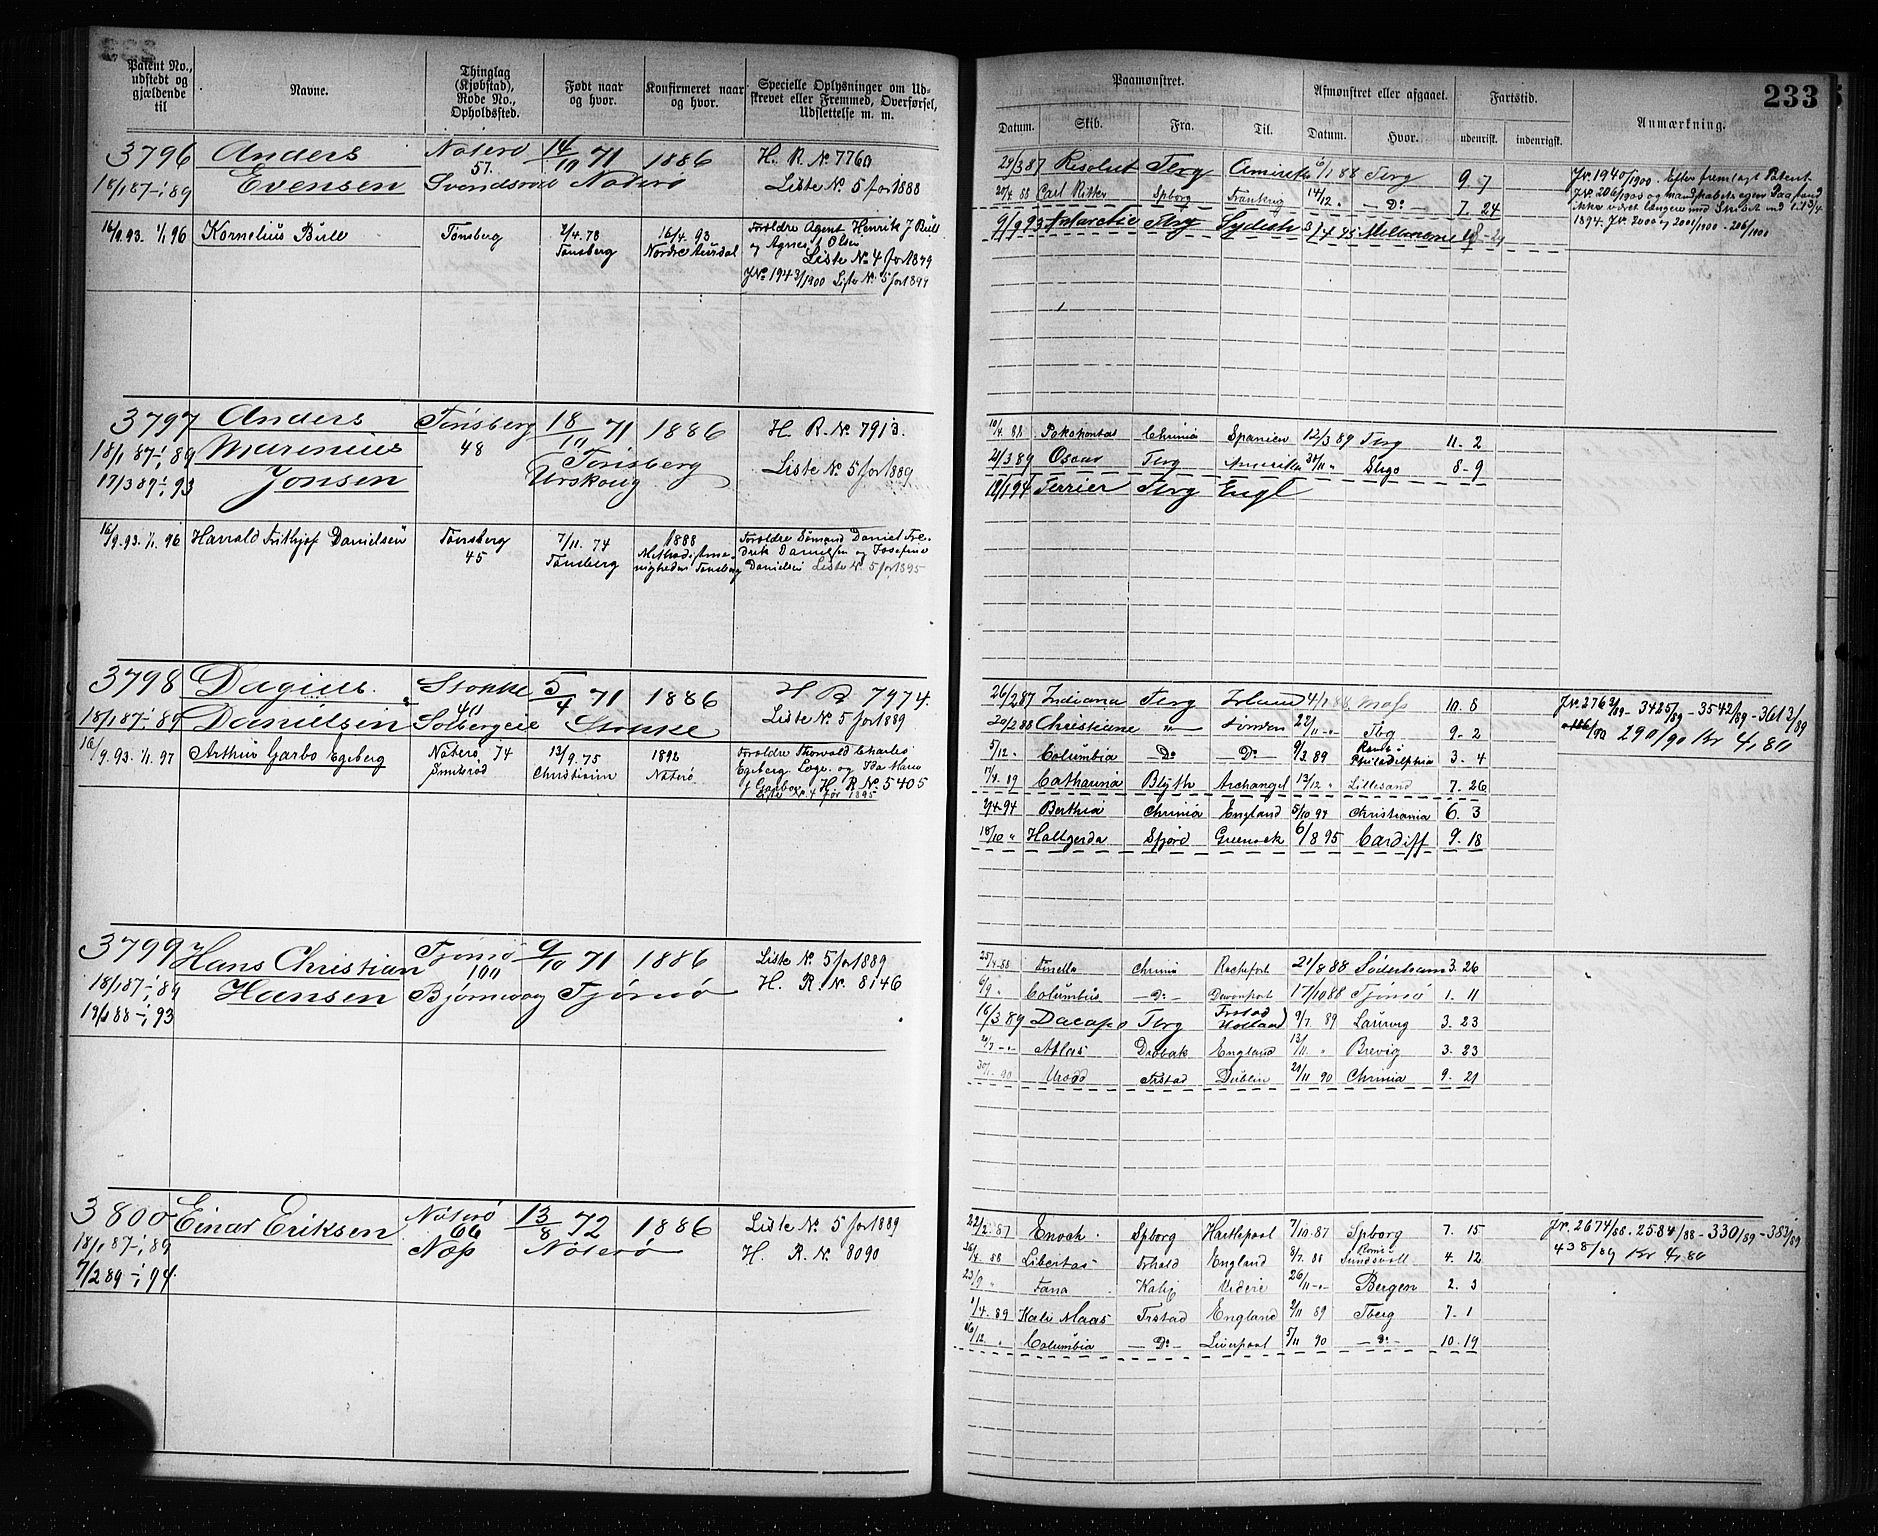 233
Patent No., udstedt og gjældende til
Navne.
Thinglag (Kjøbstad), Rode No., Opholdssted.
Født naar og hvor.
Konfirmeret naar og hvor.
Specielle Oplysninger om Udskrevet eller Fremmed, Overførsel, Udslettelse m. m.
3796 Anders Nøterø 14/10 71 1886 H. R. No 7760
18/1 87-1/1 89 Evensen 57. Nøterø Liste No 5 for 1888
16/9.93. 1/1 96 Kornelius Bull Tønsberg 2/4.78 16/4.93 Forældre Agent Henrik J Bull
Tønsberg Nordre Aurdal og Agnes f Olsen
Liste No 4 for 1899
JNo 1943/1900 Liste No 5 for 1899
3797 Anders Tønsberg 18/10 71 1886 H. R. No 7913.
18/1 87-1/1 89 Marenius 48 Tønsberg Liste No 5 for 1889
17/3 89-1/1 93 Jonsen Urskoug
16/9.93. 1/1 96 Harrald Frithjof Danielsen Tønsberg 7/11. 74 1888 Forældre Sømand Daniel Fre-
45 Tønsberg Methodistme- drik Danielsen og Josefine
nigheden Tønsberg Danielsen Liste No 5 for 1895
3798 Dagius Stokke 5/4 71 1886 H R 7974.
18/1 87-1/1 89 Danielsen Stokke Liste No 5 for 1889
16/9.93. 1/1 97 Arthur Garbo Egeberg Nøterø 74 13/9.75 1892 Forældre Thorvald Charles
Smidsrød Christiania Nøterø Egeberg Loge. og Ida Marie
f Garbo. H R No 5405
Liste No 4 for 1895
3799 Hans Christian Tjømø 9/10 71 1886 Liste No 5 for 1889
18/1 87-1/1 89 Hansen Tjømø H. R. No. 8146
3800 Einar Eriksen Nøterø 13/8 72 1886 Liste No. 5 for 1889
18/1 87-1/1 89 66 Nøterø H. R. No. 8090
7/2 89-1/1 94. Næs
Paamønstret.
Afmønstret eller afgaaet.
Fartstid.
Anmærkning.
233
Datum. Skib. Fra. Til. Datum. Hvor. udenrigsk. indenrigsk.
24/3 87 Resolut Tbrg Amerika 6/1 88 Tbrg 9 7
20/4 88 Carl Ritter Spborg Frankrig 14/12 " - Do - 7. 24
9/9 93 Antarctic Tbrg Sydish
JNr 1940/1900. Efter fremlagt Patent
10/4. 88 Pokahontas Chrinia Spanien 12/3 89 Tbrg 11. 2
21/3 89 Oscar Tbrg Amerika 8-9
18/1 94 Terrier Tbrg Engl
26/2 87 Indiana Tbrg Irland 4/1 88 Moss 10. 8
20/2 88 Christiane " London 22/11 Tbg 9-2
5/12 " Columbia Do - Do - 9/3 89 Philadelphia 3. 4
17/4. 89 Catharina Blyth Archangel 13/12 " Lillesand 7. 26
2/4-94 Berthia Chrinia England 5/10 94 Christiania 6. 3
18/10 " Hallgerda Sfjord Greenock 6/8 95 Cardiff 9. 18
JNr. 2762/89 - 3425/89 - 3542/89 - 3613/89
290/90 Kr 4,80
25/4-88 Finella Chrinia Rochefort 21/8 88 Söderham 3. 26
6/9 " Columbus - Do - Devonport 17/10 88 Tjømø 1. 11
16/3 89 Dacapo Tbrg Frstad Holland 9/7 89 Laurvig 3. 23
Atlas Drøbak England 13/11 " Brevig 3. 23
30/1-90 Urædd Frstad Dublin 21/11 90 Chrinia 9. 21
22/2 87 Enoch Spborg Hartlepool 7/10 87 Spborg 7. 15
26/4 88 Libertas Frhald England 8/7. 88 Sundsvall 4. 12
23/9 " Fana 26/11 Bergen 2. 3
1/4. 89 Kate Maas Frstad England 2/11 89 Tberg 7. 1
16/12. " Columbia - Do - Liverpool 5/11 90 - Do - 10. 19
JNr. 2674/88. 2584/88 - 330/89 - 383/89
438/89 Kr 4,80